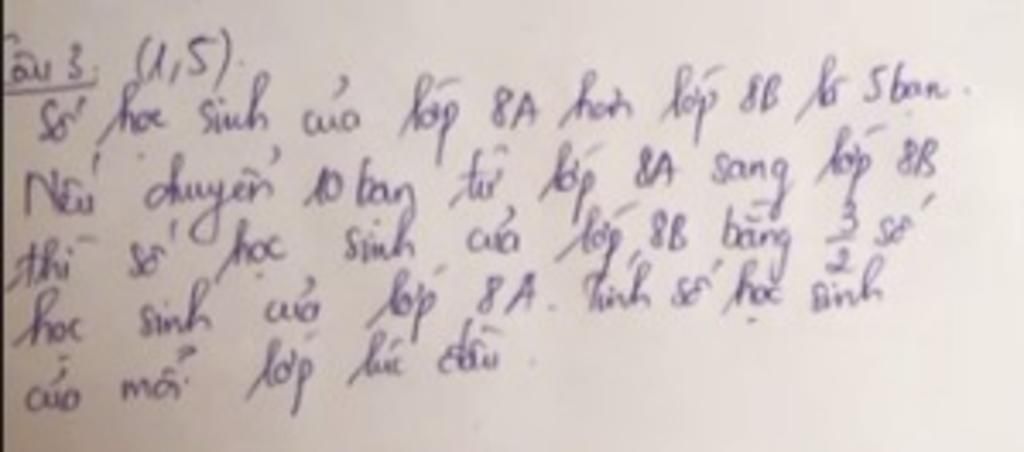 Câu 3. (1,5).
Số học sinh của lớp 8A hơn lớp 8B là 5 bạn.
Nếu chuyển 10 bạn từ lớp 8A sang lớp 8B
thì số học sinh của lớp 8B bằng 3/2 số
học sinh của lớp 8A. Tính số học sinh
của mỗi lớp lúc đầu.